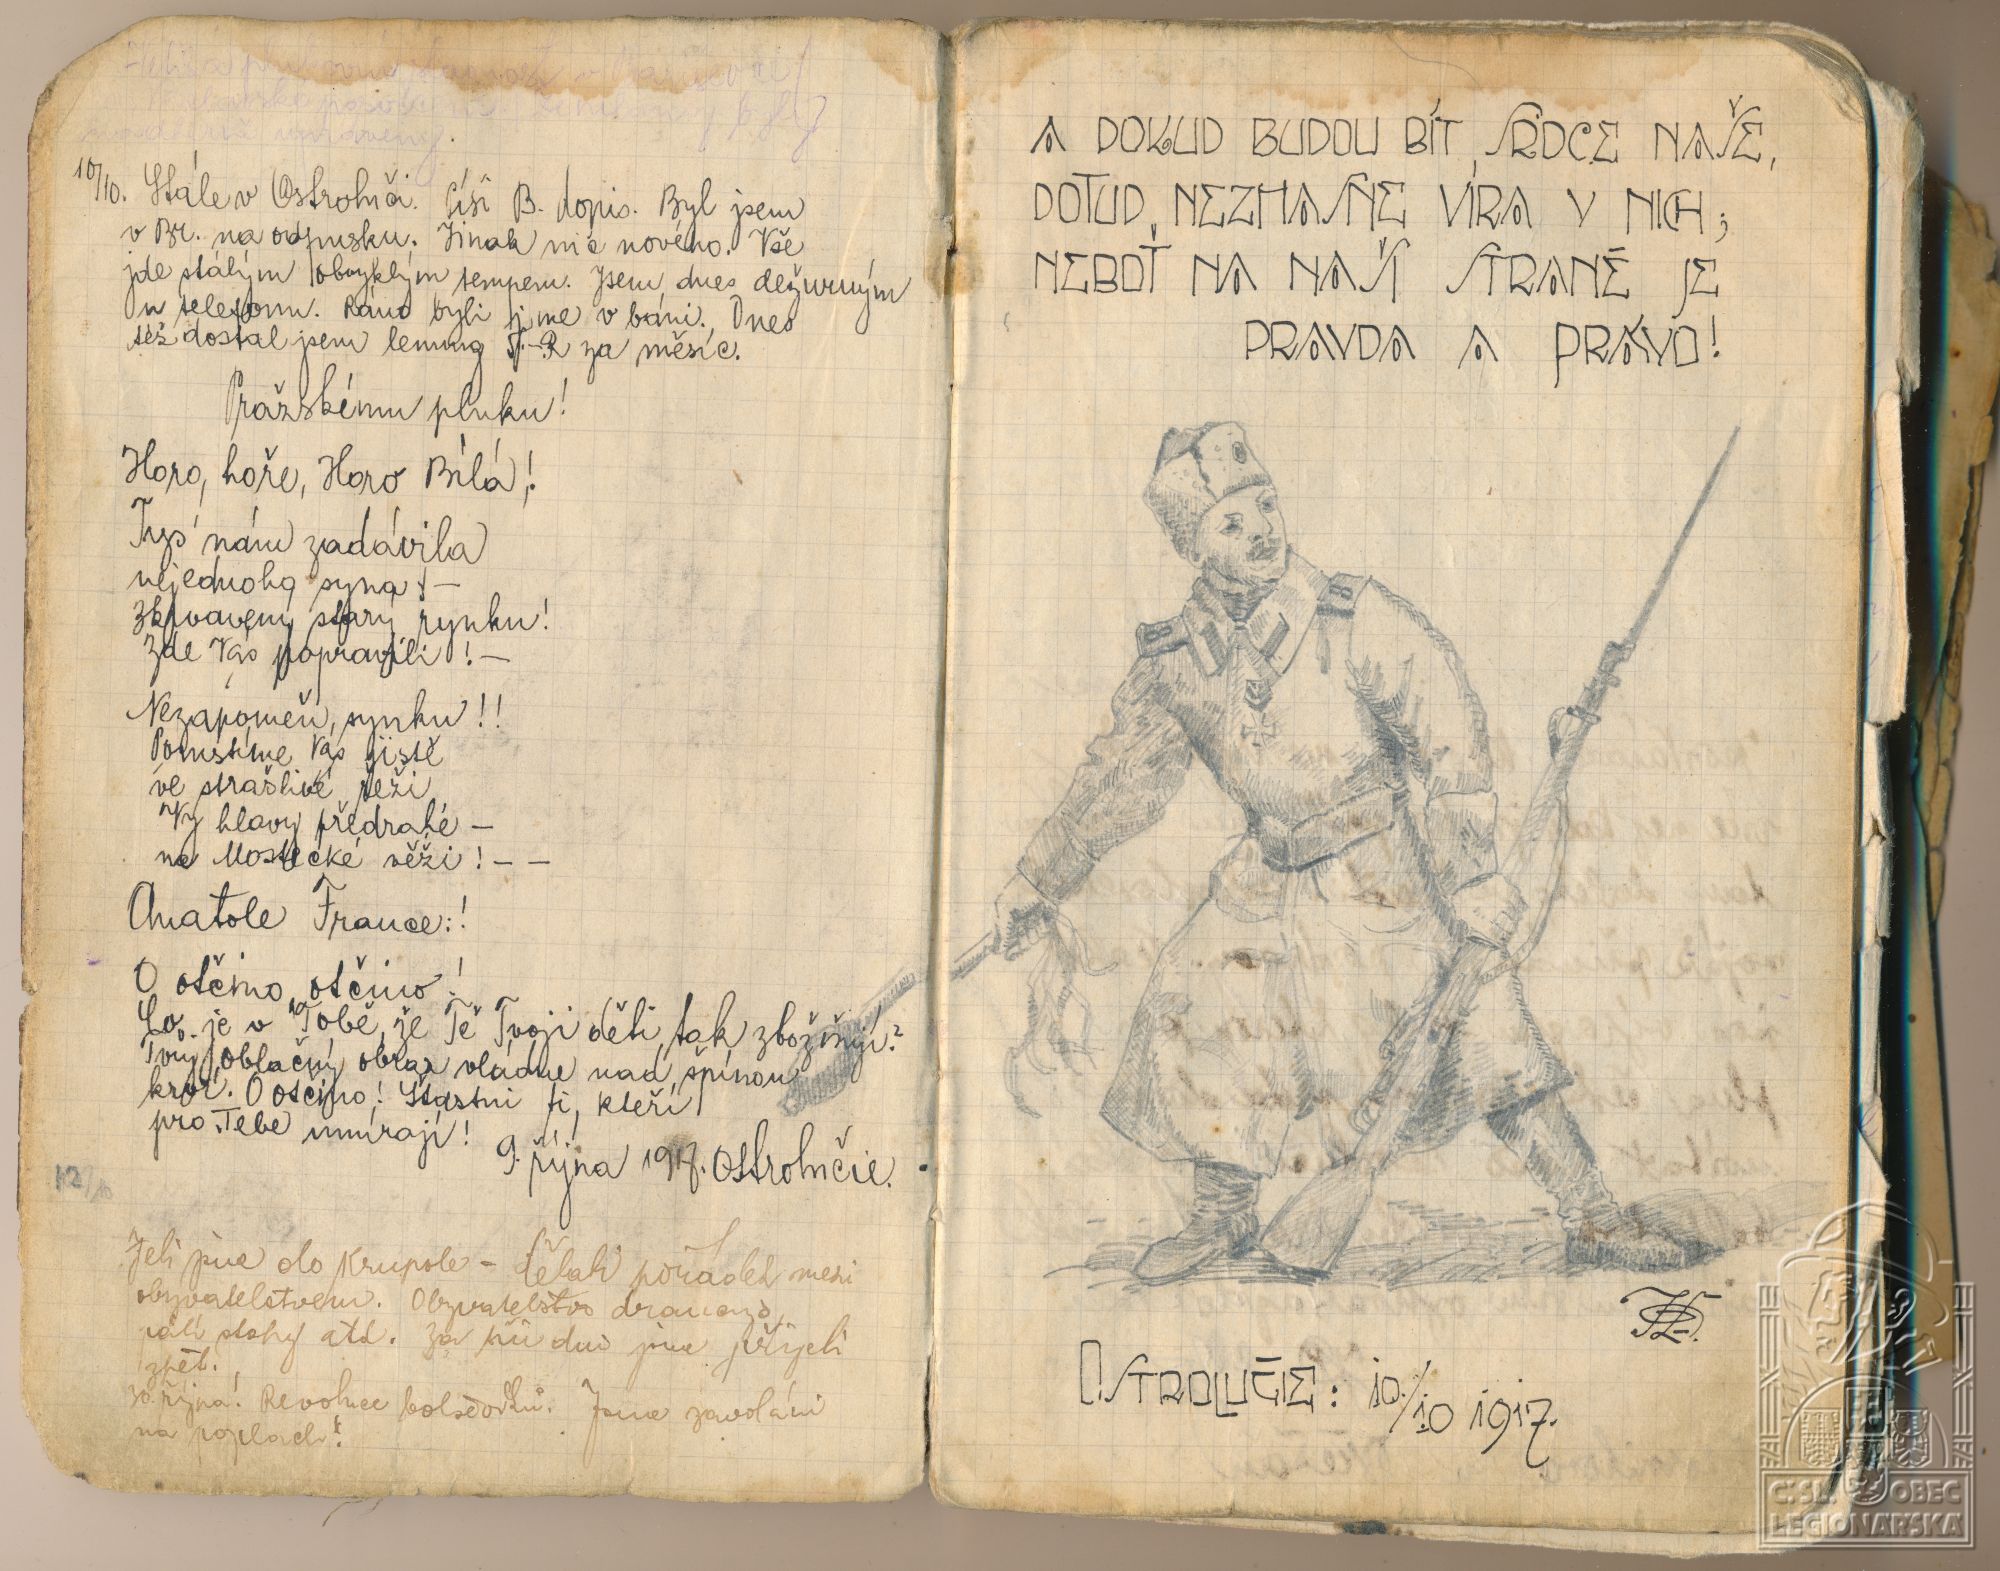 10/10. Stále v Ostrolučí. Píši B. dopis. Byl jsem
v Br. na odpusku. Jinak nic nového. Vše
jde stálým obvyklým tempem. Jsem dnes dežurným
u telefonu. Ráno byli jsme v báni. Dnes
též dostal jsem lenung za měsíc.
Pražskému pluku!
Horo, hoře, Horo Bílá!
Tys' nám zadávila
nejednoho syna! —
Zkrvavený starý rynku!
Zde Vás popravili! —
Nezapomeň, synku!!
Pomstíme Vás jistě
ve strašlivé řeži
Vy hlavy předrahé —
na Mostecké věži! — —
Anatole France:!
O otčino, otčino!
Co je v Tobě, že Tě Tvoji děti tak zbožňují?
Tvůj oblačný obraz vládne nad špínou
krví. O otčino! Šťastni ti, kteří
pro Tebe umírají!
9. října 1917. Ostrolučie.
12/10
Jeli jsme do Krupole — dělati pořádek mezi
obyvatelstvem. Obyvatelstvo drancuje,
pálí stohy atd. Za dni jsme přijeli
zpět.
30. října! Revoluce bolševiků. Jsme zavoláni
na poplach!
A DOKUD BUDOU BÍT SRDCE NAŠE,
DOTUD NEZHASNE VÍRA V NICH;
NEBOŤ NA NAŠÍ STRANĚ JE
PRAVDA A PRÁVO!
OSTROLUČIE: 10./10 1917.
Č. SL. OBEC
LEGIONÁŘSKÁ